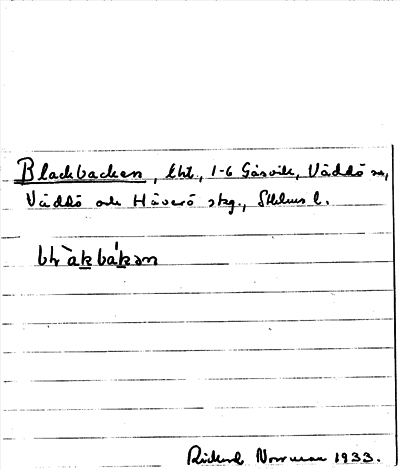 Blackbacken, lht., 1-6 Gåsvik, Väddö sn,
Väddö och Häverö skg., Sthlms l.
blàkbákən
Rickard Norrman 1933.